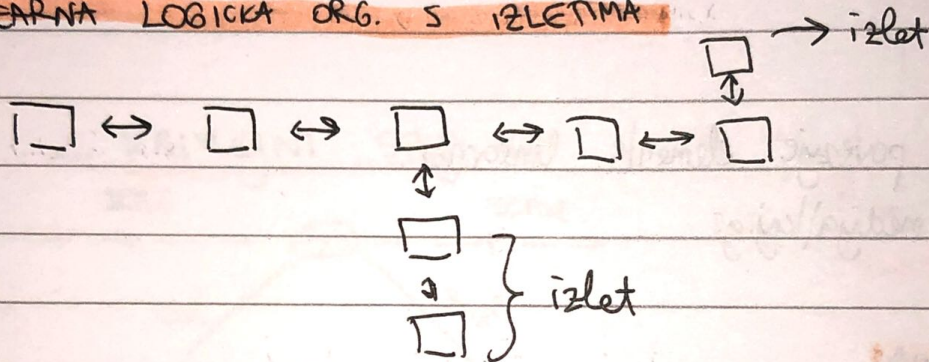 EARNA LOGICKA ORG. S IZLETIMA
izlet
izlet